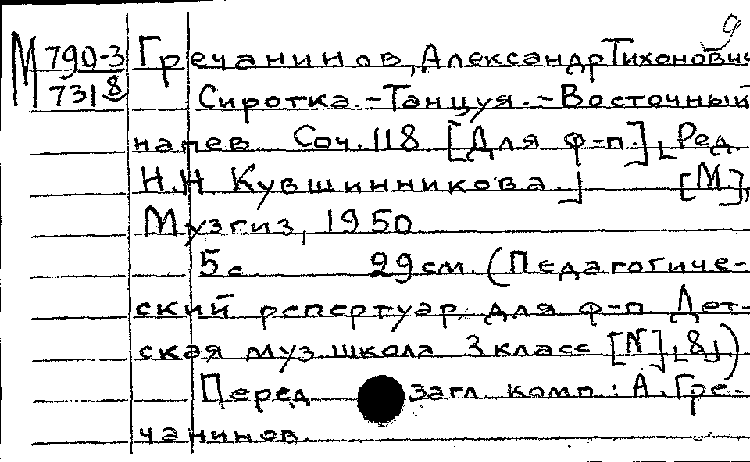 9
М 790-3 Гречанинов, Александр Тихонович
7318 Сиротка.-Танцуя.-Восточный
напев Соч. 118 [Для ф-п.] [Ред.
Н.Н Кувшинникова.] [М],
Музгиз, 1950
5с 29см. (Педагогиче-
ский репертуар для ф-п Дет-
ская муз. школа 3 класс [N] [8])
Перед загл. комп.: А. Гре-
чанинов.